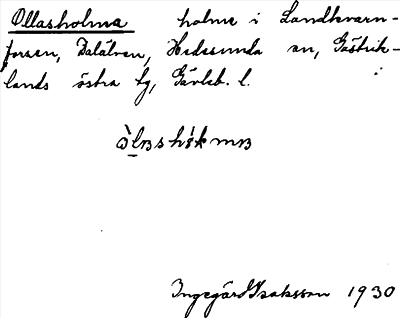 Ollasholma holme i Landkvarn-
forsen, Dalälven, Hedesunda sn, Gästrik-
lands östra tg, Gävleb. l.
Ingegärd Isaksson 1930